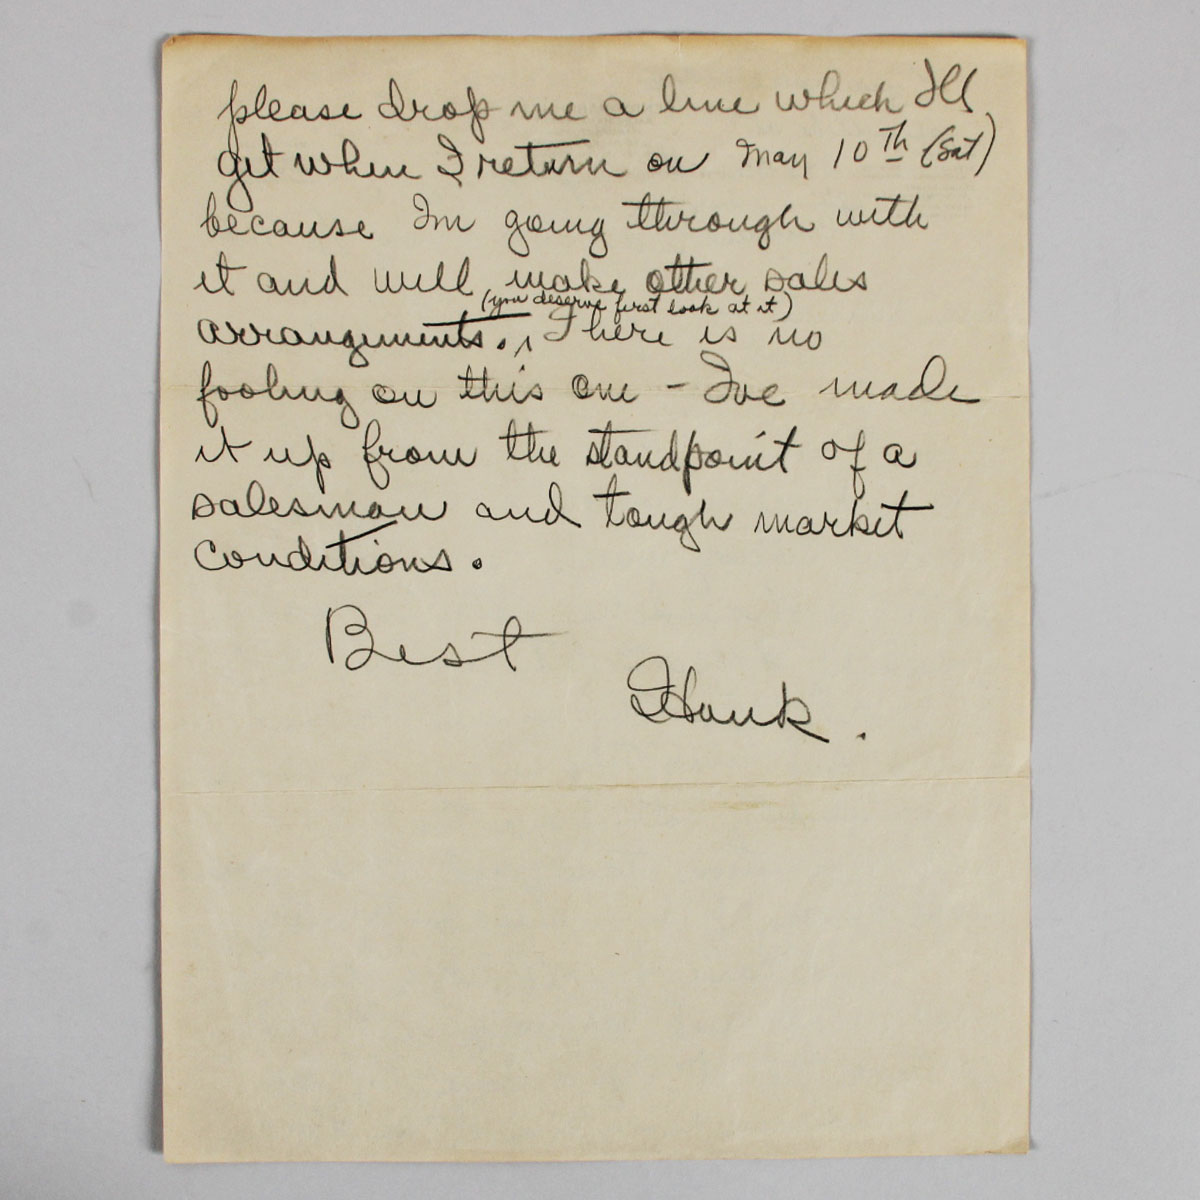 please drop me a line which Ill
get when I return on May 10th (Sat)
because Im going through with
it and will make other sales
(you deserve first look at it)
arrangements. There is no
fooling on this one - Ive made
it up from the standpoint of a
salesman and tough market
conditions.
Best
Hank.